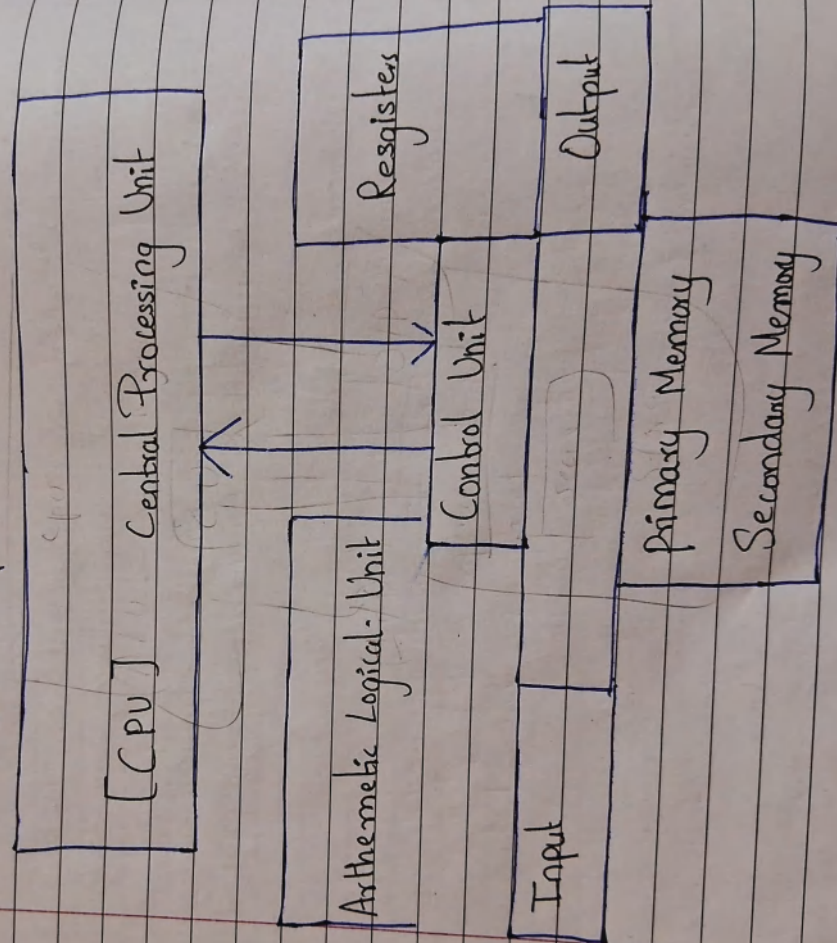 [CPU] Central Processing Unit
Arthemetic Logical-Unit
Resgisters
Control Unit
Input
Output
Primary Memory
Secondary Memory